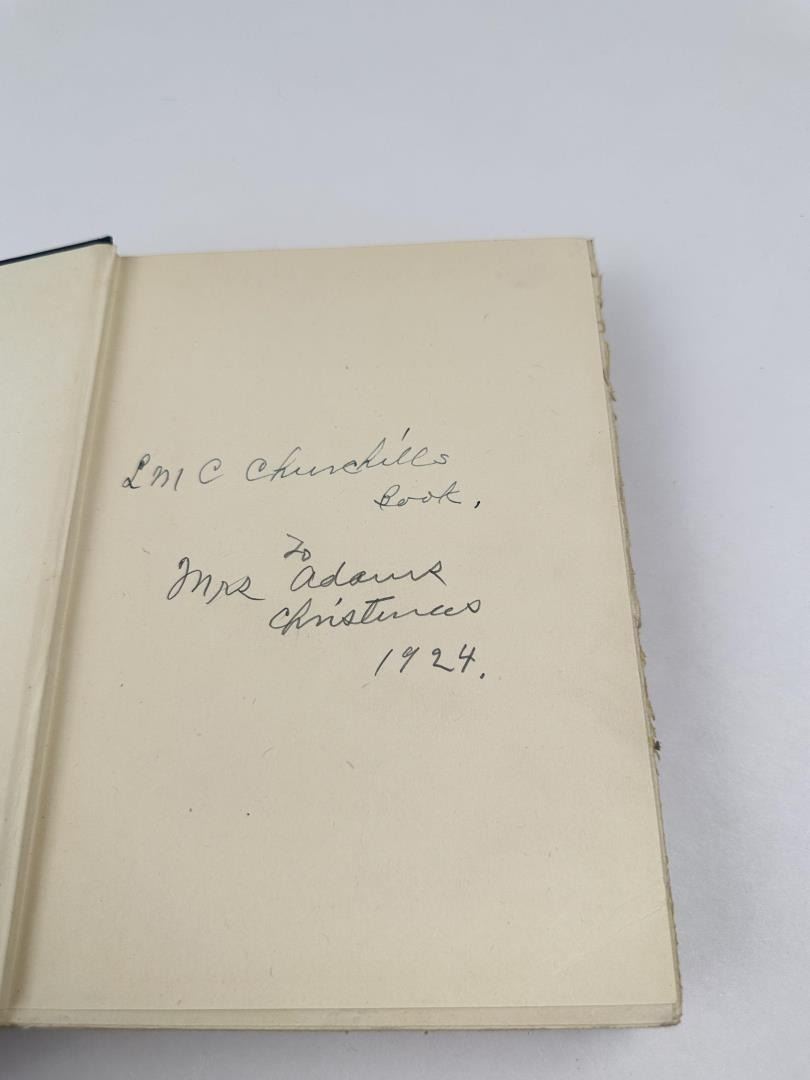 L M C Churchill's
Book.
To
Mrs Adams
Christmas
1924.